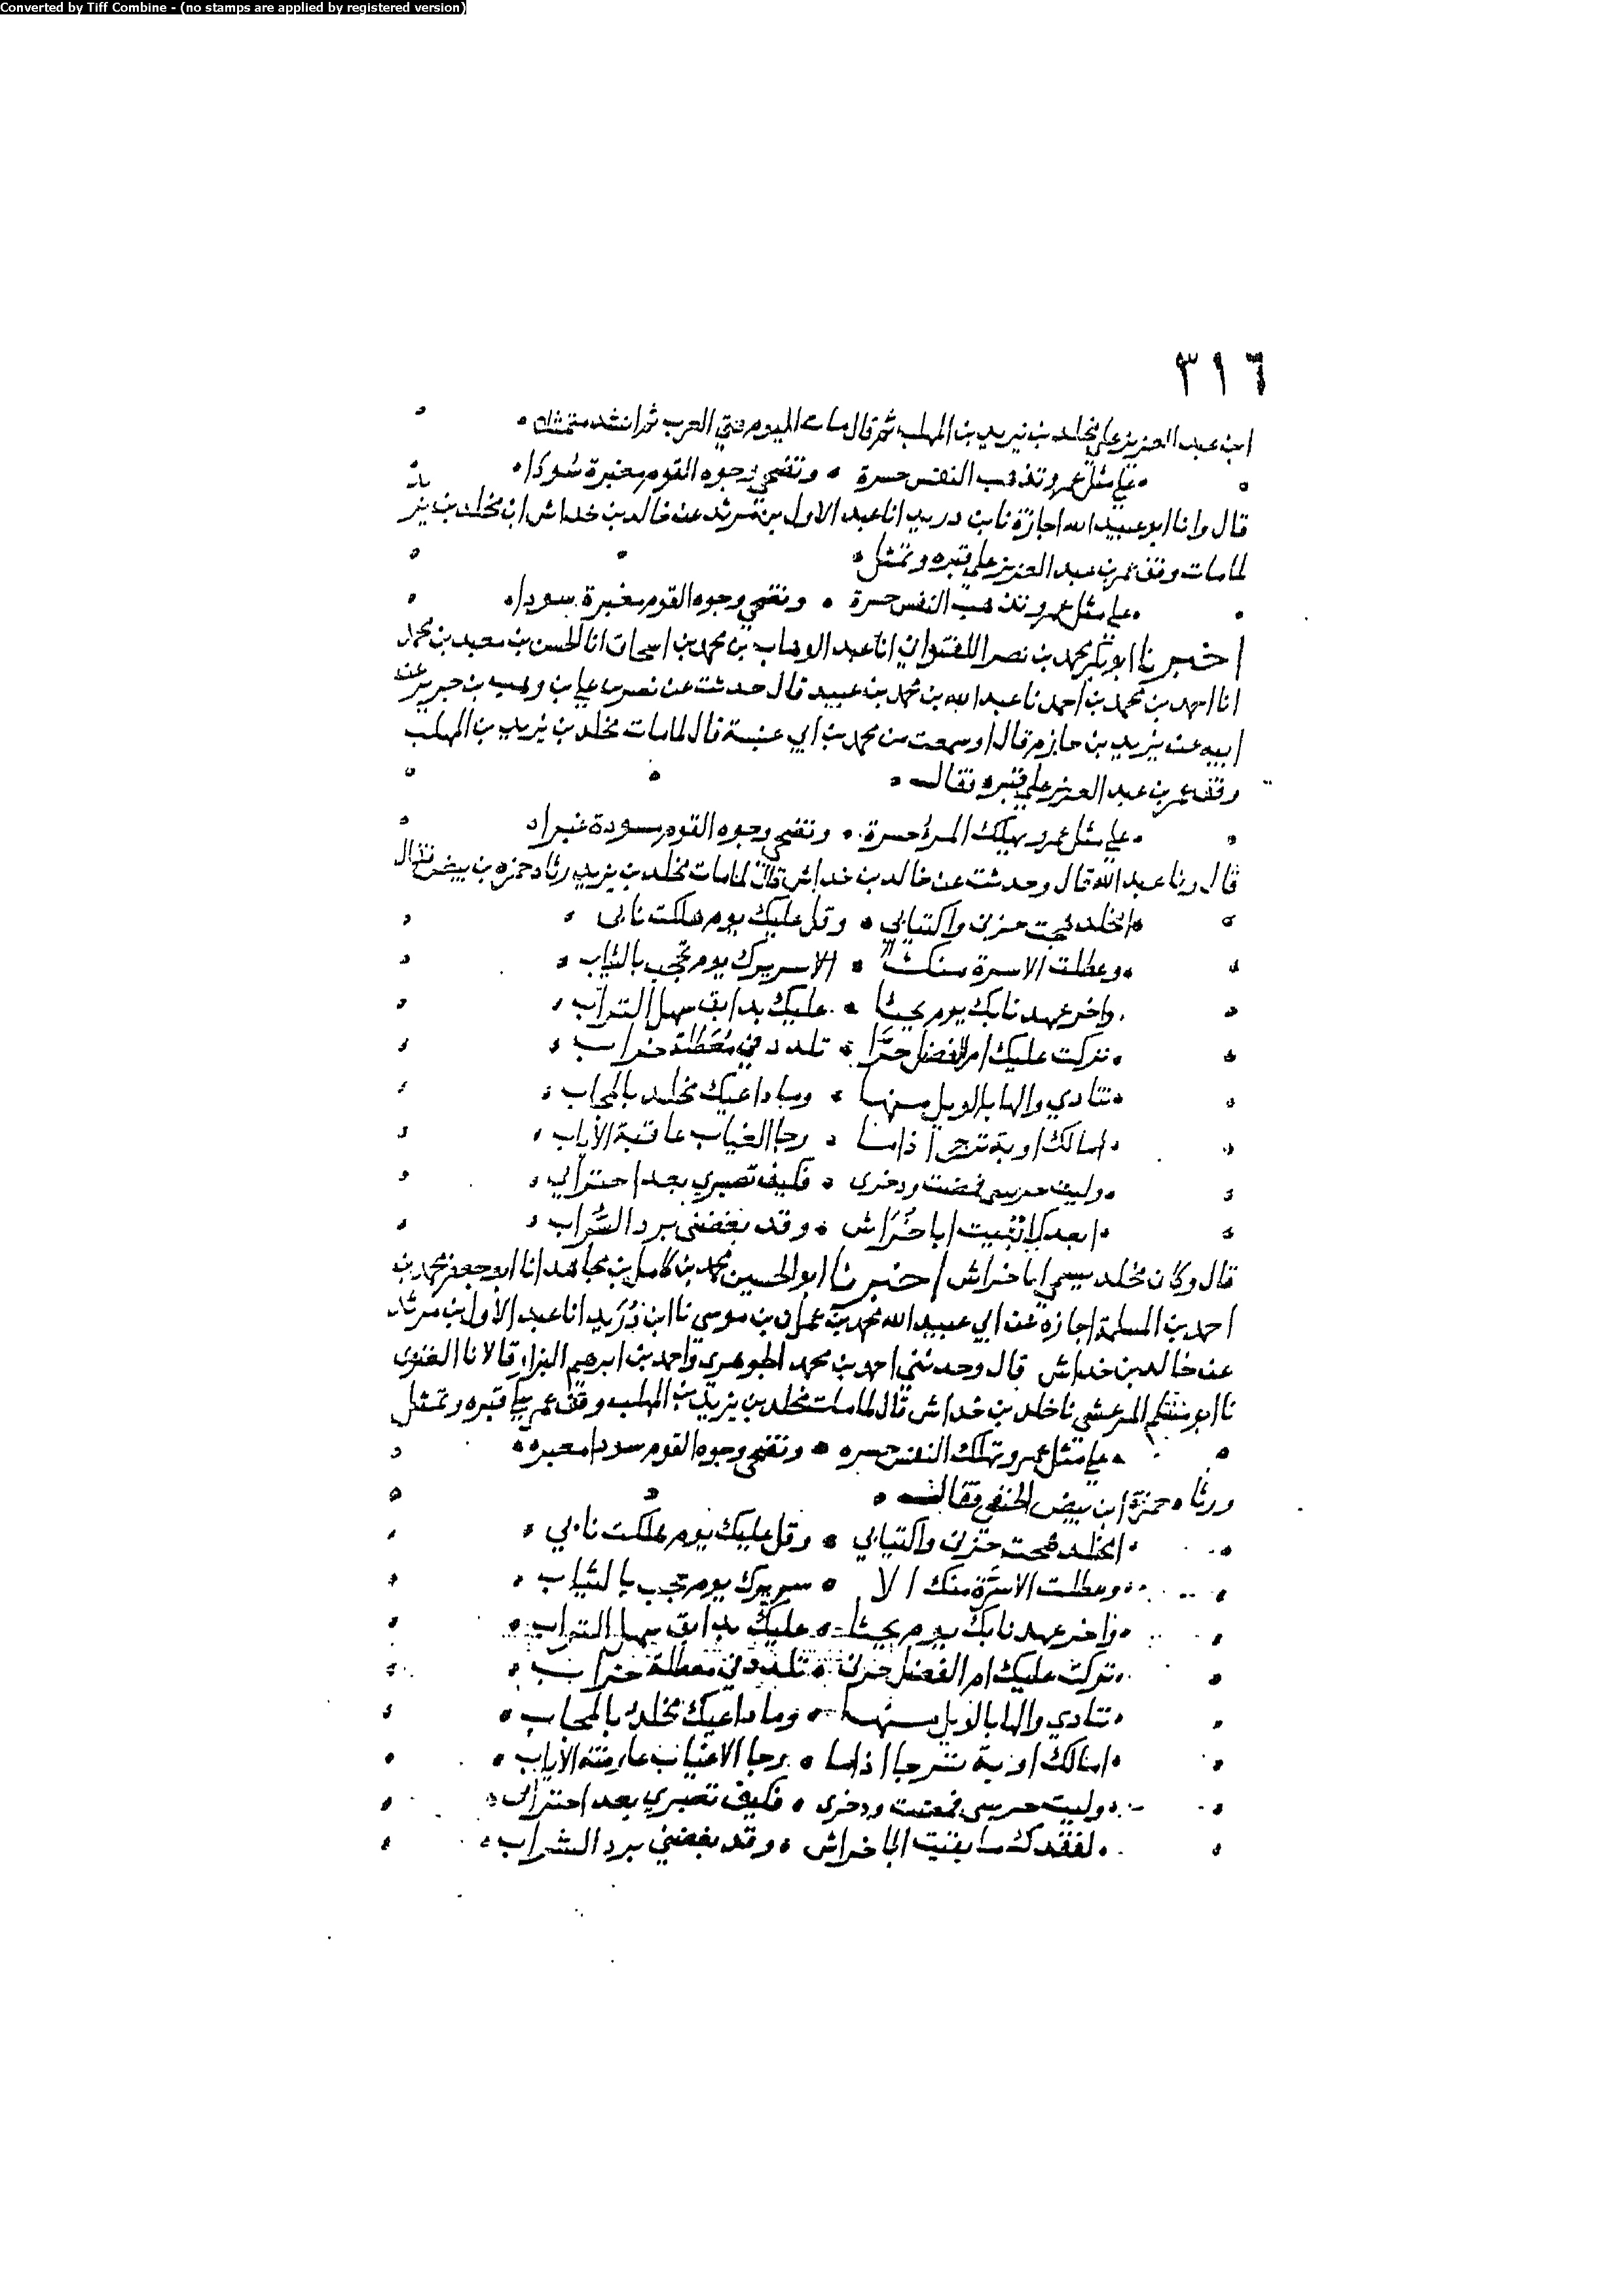 Converted by Tiff Combine - (no stamps are applied by registered version)
٣١٦
ابن عبد العزيز على مخلد بن يزيد بن المهلب ثم قال مات اليوم فتى العرب ثم انشد متمثلا
على مثل عمرو تذهب النفس حسرة وتضحي وجوه القوم مغبرة سودا
قال وانا ابو عبيد الله اجازة نا بن دريد انا عبد الاول بن مرثد عن خالد بن خداش ان مخلد بن يز
لما مات وقف عمر بن عبد العزيز على قبره وتمثل
على مثل عمرو تذهب النفس حسرة وتضحي وجوه القوم مغبرة سودا
اخبرنا ابو بكر محمد بن نصر اللفتواني انا عبد الوهاب بن محمد بن اسحاق انا الحسن بن معبد بن محمد
انا احمد بن محمد بن احمد نا عبد الله بن محمد بن عبيد قال حدثت عن نصر بن علي بن وهب بن جرير عن
ابيه عن يزيد بن حازم قال او سمعت من محمد بن ابي عنبسة قال لما مات مخلد بن يزيد بن المهلب
وقف عمر بن عبد العزيز على قبره فقال
على مثل عمرو يهلك المرؤ حسرة وتضحي وجوه القوم مسودة غبرا
قال ونا عبد الله قال وحدثت عن خالد بن خداش قال لما مات مخلد بن يزيد رثاه حمزه بن بيض فقال
امخلد هجت حزني واكتيابي وقل عليك يوم هلكت نابى
وعطلت الاسرة منك الا سريرك يوم تحجب بالثياب
واخر عهدنا بك يوم يحثا عليك بدابق سهل التراب
تركت عليك ام الفضل حرا تلدد في معطلة خراب
تنادي والها بالويل منها وما داعيك مخلد بالمجاب
امالك اوبة ترجى اذا ما رجا الغياب عاقبة الاياب
وليت حريبتي ودخرى فكيف تصبري بعد احتزابي
ابعدك ابا خراش وقد بغضنى برد الشراب
قال وكان مخلد يسمى ابا خراش اخبرنا ابو الحسين محمد بن كامل بن مجاهد انا ابو جعفر محمد بن
احمد بن المسلمة اجازة عن ابي عبيد الله محمد بن عمران بن موسى نا ابن دريد انا عبد الاول بن مرثد
عن خالد بن خداش قال وحدثني احمد بن محمد الجوهري واحمد بن ابرهيم البزار قالا نا الغنوى
نا ابو المرعشي نا خلد بن خداش قال لما مات مخلد بن يزيد بن المهلب وقف عمر على قبره وتمثل
على مثل عمرو تهلك النفس حسره وتضحى وجوه القوم سودا مغبره
ورثاه حمزة ابن بيض الحنفي فقال
امخلد هجت حزني واكتيابي وقل عليك يوم هلكت نابي
وعطلت الاسرة منك الا سريرك يوم تحجب بالثياب
واخر عهدنا بك يوم يحثا عليك بدابق سهل التراب
تركت عليك ام الفضل حزنى تلدد في معطلة خراب
تنادي والها بالويل منها وما داعيك مخلد بالمجاب
امالك اوبة ترجا اذا ما رجا الاغياب عاقبة الاياب
وليت حريبتي ودخرى فكيف تصبري بعد احتزابى
لفقدك ما بقيت ابا خراش وقد بغضني برد الشراب